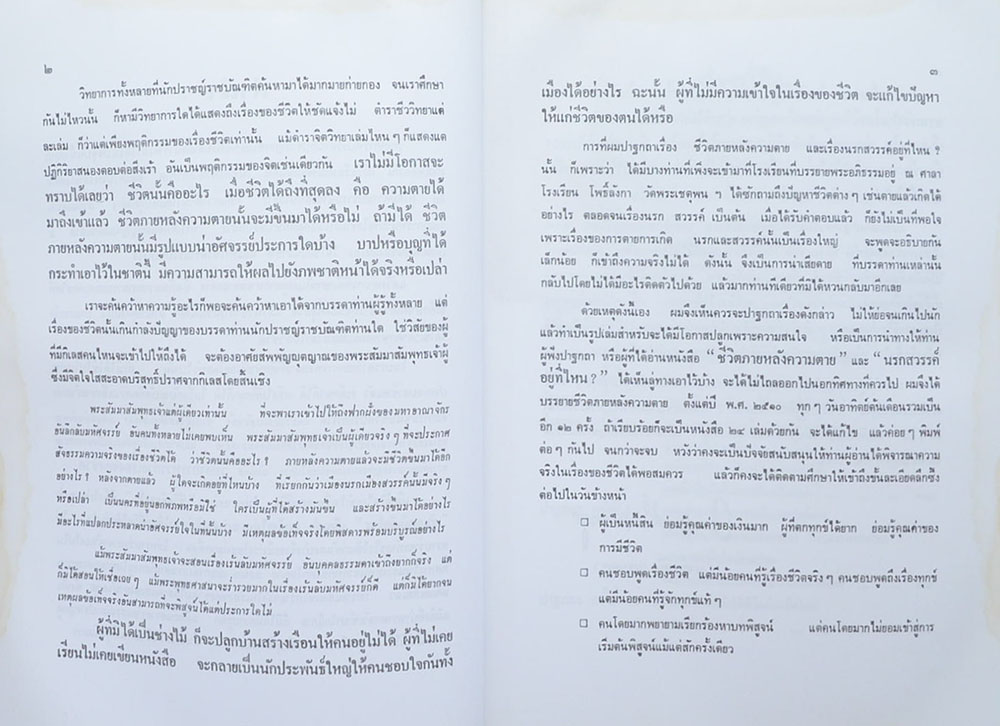 ๒
วิทยาการทั้งหลายที่นักปราชญ์ราชบัณฑิตค้นหามาได้มากมายก่ายกอง จนเราศึกษา
กันไม่ไหวนั้น ก็หามีวิทยาการใดได้แสดงถึงเรื่องของชีวิตให้ชัดแจ้งไม่ ตำราชีววิทยาแต่
ละเล่ม ก็ว่าแต่เพียงพฤติกรรมของเรื่องชีวิตเท่านั้น แม้ตำราจิตวิทยาเล่มไหน ๆ ก็แสดงแต่
ปฏิกิริยาสนองตอบต่อสิ่งเร้า อันเป็นพฤติกรรมของจิตเช่นเดียวกัน เราไม่มีโอกาสจะ
ทราบได้เลยว่า ชีวิตนั้นคืออะไร เมื่อชีวิตได้ถึงที่สุดลง คือ ความตายได้
มาถึงเข้าแล้ว ชีวิตภายหลังความตายนั้นจะมีขึ้นมาได้หรือไม่ ถ้ามีได้ ชีวิต
ภายหลังความตายนั้นมีรูปแบบน่าอัศจรรย์ประการใดบ้าง บาปหรือบุญที่ได้
กระทำเอาไว้ในชาตินี้ มีความสามารถให้ผลไปยังภพชาติหน้าได้จริงหรือเปล่า
เราจะค้นคว้าหาความรู้อะไรก็พอจะค้นคว้าหาเอาได้จากบรรดาท่านผู้รู้ทั้งหลาย แต่
เรื่องของชีวิตนั้นเกินกำลังปัญญาของบรรดาท่านนักปราชญ์ราชบัณฑิตท่านใด ใช่วิสัยของผู้
ที่มีกิเลสคนไหนจะเข้าไปให้ถึงได้ จะต้องอาศัยสัพพัญญุตญาณของพระสัมมาสัมพุทธเจ้าผู้
ซึ่งมีจิตใจใสสะอาดบริสุทธิ์ปราศจากกิเลสโดยสิ้นเชิง
พระสัมมาสัมพุทธเจ้าแต่ผู้เดียวเท่านั้น ที่จะพาเราเข้าไปให้ถึงฟากฝั่งของมหาอาณาจักร
อันลึกลับมหัศจรรย์ อันคนทั้งหลายไม่เคยพบเห็น พระสัมมาสัมพุทธเจ้าเป็นผู้เดียวจริง ๆ ที่จะประกาศ
สัจธรรมความจริงของเรื่องชีวิตได้ ว่าชีวิตนั้นคืออะไร ? ภายหลังความตายแล้วจะมีชีวิตขึ้นมาได้อีก
อย่างไร ? หลังจากตายแล้ว ผู้ใดจะเกิดอยู่ที่ไหนบ้าง ที่เรียกกันว่าเมืองนรกเมืองสวรรค์นั้นมีจริง ๆ
หรือเปล่า เป็นนครที่อยู่นอกพิภพหรือมิใช่ ใครเป็นผู้ที่ได้สร้างมันขึ้น และสร้างขึ้นมาได้อย่างไร
มีอะไรที่แปลกประหลาดน่าอัศจรรย์ใจในที่นั้นบ้าง มีเหตุผลข้อเท็จจริงโดยพิสดารพร้อมบริบูรณ์อย่างไร
แม้พระสัมมาสัมพุทธเจ้าจะสอนเรื่องเร้นลับมหัศจรรย์ อันบุคคลธรรมดาเข้าถึงยากก็จริง แต่
ก็มิได้สอนให้เชื่อเฉย ๆ แม้พระพุทธศาสนาจะร่ำรวยมากในเรื่องเร้นลับมหัศจรรย์ก็ดี แต่ก็มิได้ยากจน
เหตุผลข้อเท็จจริงอันสามารถที่จะพิสูจน์ได้แต่ประการใดไม่
ผู้ที่มิได้เป็นช่างไม้ ก็จะปลูกบ้านสร้างเรือนให้คนอยู่ไม่ได้ ผู้ที่ไม่เคย
เรียนไม่เคยเขียนหนังสือ จะกลายเป็นนักประพันธ์ใหญ่ให้คนชอบใจกันทั้ง
๓
เมืองได้อย่างไร ฉะนั้น ผู้ที่ไม่มีความเข้าใจในเรื่องของชีวิต จะแก้ไขปัญหา
ให้แก่ชีวิตของตนได้หรือ
การที่ผมปาฐกถาเรื่อง ชีวิตภายหลังความตาย และเรื่องนรกสวรรค์อยู่ที่ไหน ?
นั้น ก็เพราะว่า ได้มีบางท่านที่เพิ่งจะเข้ามาที่โรงเรียนที่บรรยายพระอภิธรรมอยู่ ณ ศาลา
โรงเรียน โพธิ์ลังกา วัดพระเชตุพน ๆ ได้ซักถามถึงปัญหาชีวิตต่าง ๆ เช่นตายแล้วเกิดได้
อย่างไร ตลอดจนเรื่องนรก สวรรค์ เป็นต้น เมื่อได้รับคำตอบแล้ว ก็ยังไม่เป็นที่พอใจ
เพราะเรื่องของการตายการเกิด นรกและสวรรค์นั้นเป็นเรื่องใหญ่ จะพูดจะอธิบายกัน
เล็กน้อย ก็เข้าถึงความจริงไม่ได้ ดังนั้น จึงเป็นการน่าเสียดาย ที่บรรดาท่านเหล่านั้น
กลับไปโดยไม่ได้มีอะไรติดตัวไปด้วย แล้วมากท่านทีเดียวที่มิได้หวนกลับมาอีกเลย
ด้วยเหตุดังนี้เอง ผมจึงเห็นควรจะปาฐกถาเรื่องดังกล่าว ไม่ให้ย่อจนเกินไปนัก
แล้วทำเป็นรูปเล่มสำหรับจะได้มีโอกาสปลูกเพราะความสนใจ หรือเป็นการนำทางให้ท่าน
ผู้ฟังปาฐกถา หรือผู้ที่ได้อ่านหนังสือ “ชีวิตภายหลังความตาย” และ “นรกสวรรค์
อยู่ที่ไหน?” ได้เห็นลู่ทางเอาไว้บ้าง จะได้ไม่ไถลออกไปนอกทิศทางที่ควรไป ผมจึงได้
บรรยายชีวิตภายหลังความตาย ตั้งแต่ปี พ.ศ. ๒๕๑๐ ทุก ๆ วันอาทิตย์ต้นเดือนรวมเป็น
อีก ๑๒ ครั้ง ถ้าเรียบร้อยก็จะเป็นหนังสือ ๒๔ เล่มด้วยกัน จะได้แก้ไข แล้วค่อย ๆ พิมพ์
ต่อ ๆ กันไป จนกว่าจะจบ หวังว่าคงจะเป็นปัจจัยสนับสนุนให้ท่านผู้อ่านได้พิจารณาความ
จริงในเรื่องของชีวิตได้พอสมควร แล้วก็คงจะได้ติดตามศึกษาให้เข้าถึงขั้นละเอียดลึกซึ้ง
ต่อไปในวันข้างหน้า
☐ ผู้เป็นหนี้สิน ย่อมรู้คุณค่าของเงินมาก ผู้ที่ตกทุกข์ได้ยาก ย่อมรู้คุณค่าของ
การมีชีวิต
☐ คนชอบพูดเรื่องชีวิต แต่มีน้อยคนที่รู้เรื่องชีวิตจริง ๆ คนชอบพูดถึงเรื่องทุกข์
แต่มีน้อยคนที่รู้จักทุกข์แท้ ๆ
☐ คนโดยมากพยายามเรียกร้องหาบทพิสูจน์ แต่คนโดยมากไม่ยอมเข้าสู่การ
เริ่มต้นพิสูจน์แม้แต่สักครั้งเดียว